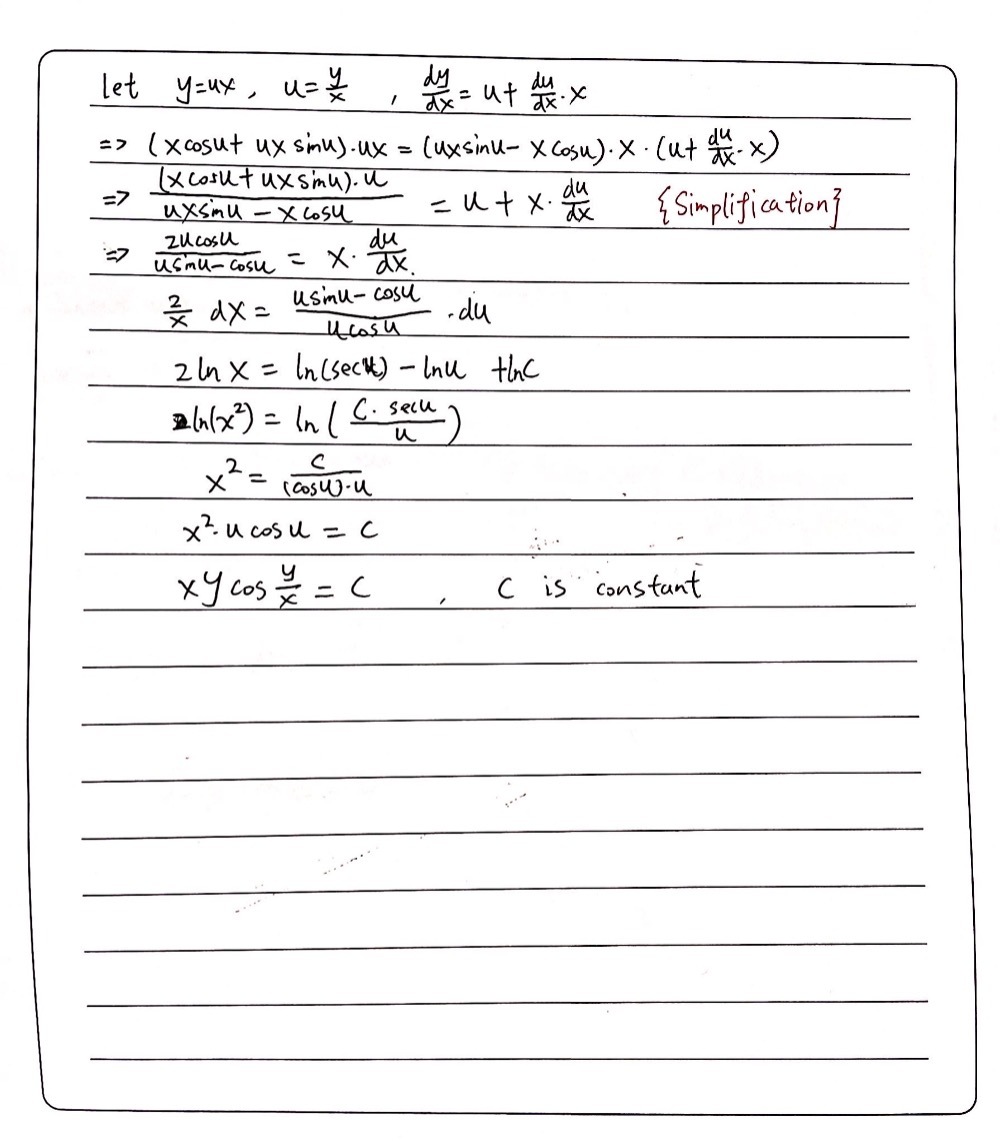 let y=ux, u=y/x, dy/dx = u+ du/dx·x
=> (xcosu+ ux sinu)·ux = (uxsinu- xcosu)·x·(u+ du/dx·x)
=> (xcosu+uxsinu)·u / uxsinu-xcosu = u+x·du/dx {Simplification}
=> 2ucosu / usinu-cosu = x·du/dx.
2/x dx = usinu-cosu / ucosu ·du
2lnx = ln(secu) - lnu +lnC
ln(x²) = ln(C·secu / u)
x² = C / (cosu)·u
x²·ucosu = C
xycos y/x = C , C is constant